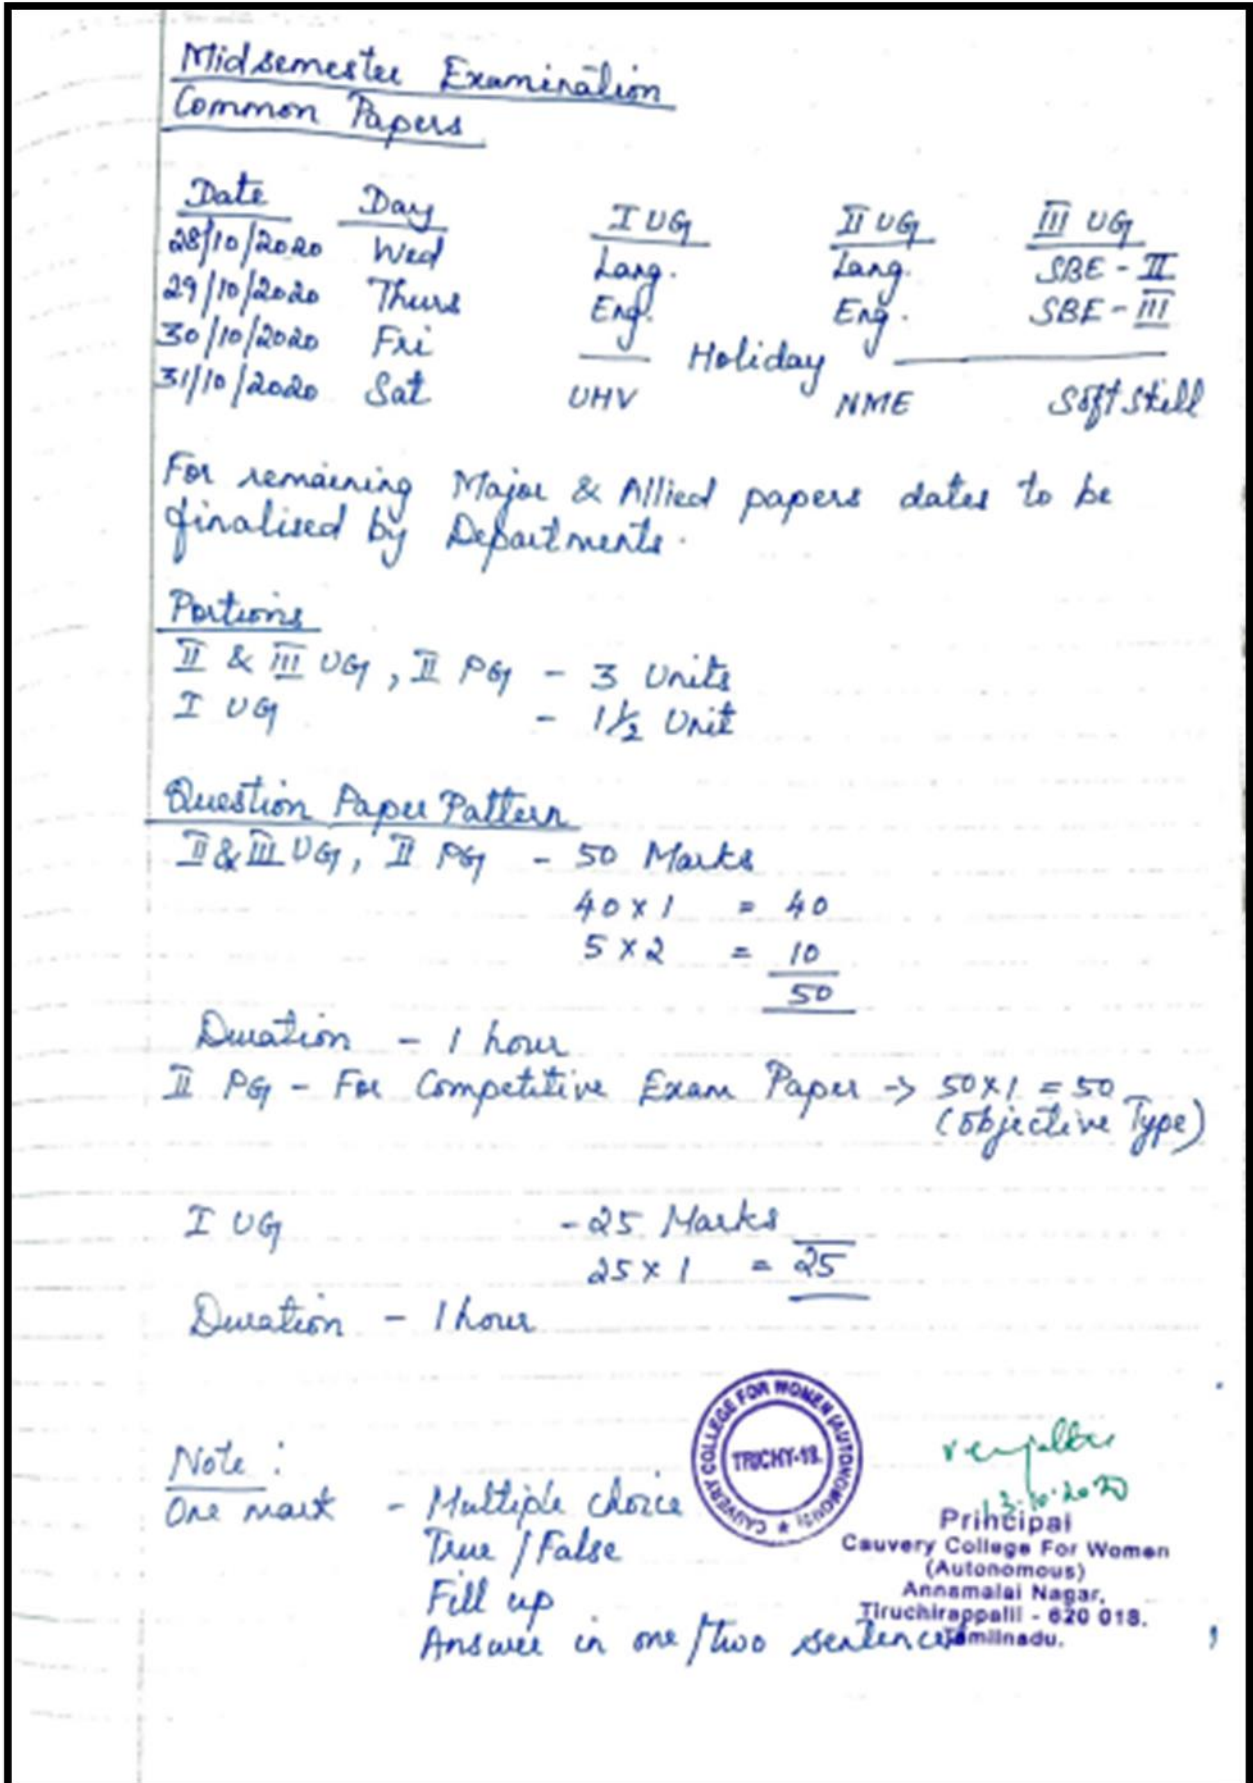 Midsemester Examination
Common Papers
Date Day I UG II UG III UG
28/10/2020 Wed Lang. Lang. SBE - II
29/10/2020 Thurs Eng. Eng. SBE - III
30/10/2020 Fri Holiday
31/10/2020 Sat UHV NME Soft Skill
For remaining Major & Allied papers dates to be
finalised by Departments.
Portions
II & III UG, II PG - 3 Units
I UG - 1 1/2 Unit
Question Paper Pattern
II & III UG, II PG - 50 Marks
40 x 1 = 40
5 x 2 = 10
50
Duration - 1 hour
II PG - For Competitive Exam Paper -> 50 x 1 = 50
(Objective Type)
I UG - 25 Marks
25 x 1 = 25
Duration - 1 hour
CAUVERY COLLEGE FOR WOMEN (AUTONOMOUS)
TRICHY-18.
Note :
One mark - Multiple choice
True / False
Fill up
Answer in one/two sentences
13.10.2020
Principal
Cauvery College For Women
(Autonomous)
Annamalai Nagar,
Tiruchirappalli - 620 018.
Tamilnadu.